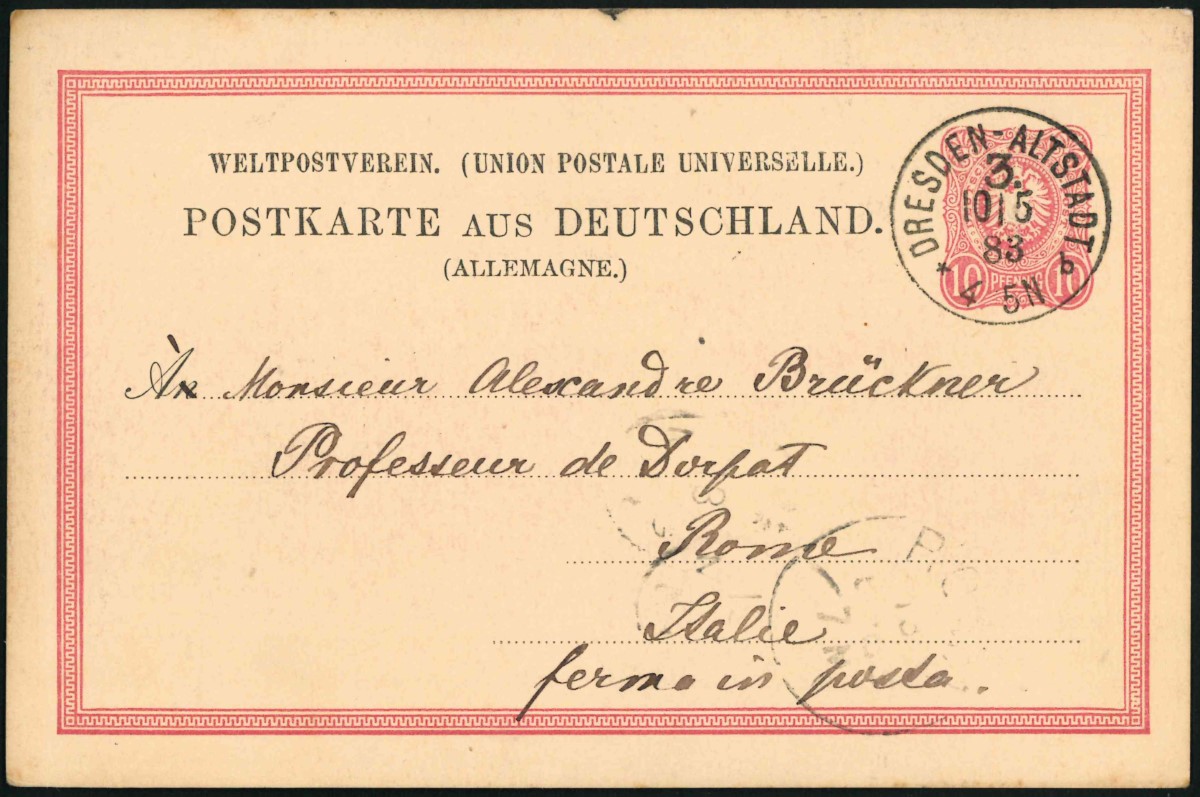 WELTPOSTVEREIN. (UNION POSTALE UNIVERSELLE.)
POSTKARTE AUS DEUTSCHLAND.
(ALLEMAGNE.)
DRESDEN-ALTSTADT b
3.
10 5
83
4 5N
10 PFENNIG 10
À Monsieur Alexandre Brückner
Professeur de Dorpat
Rome
Italie
ferma in posta.